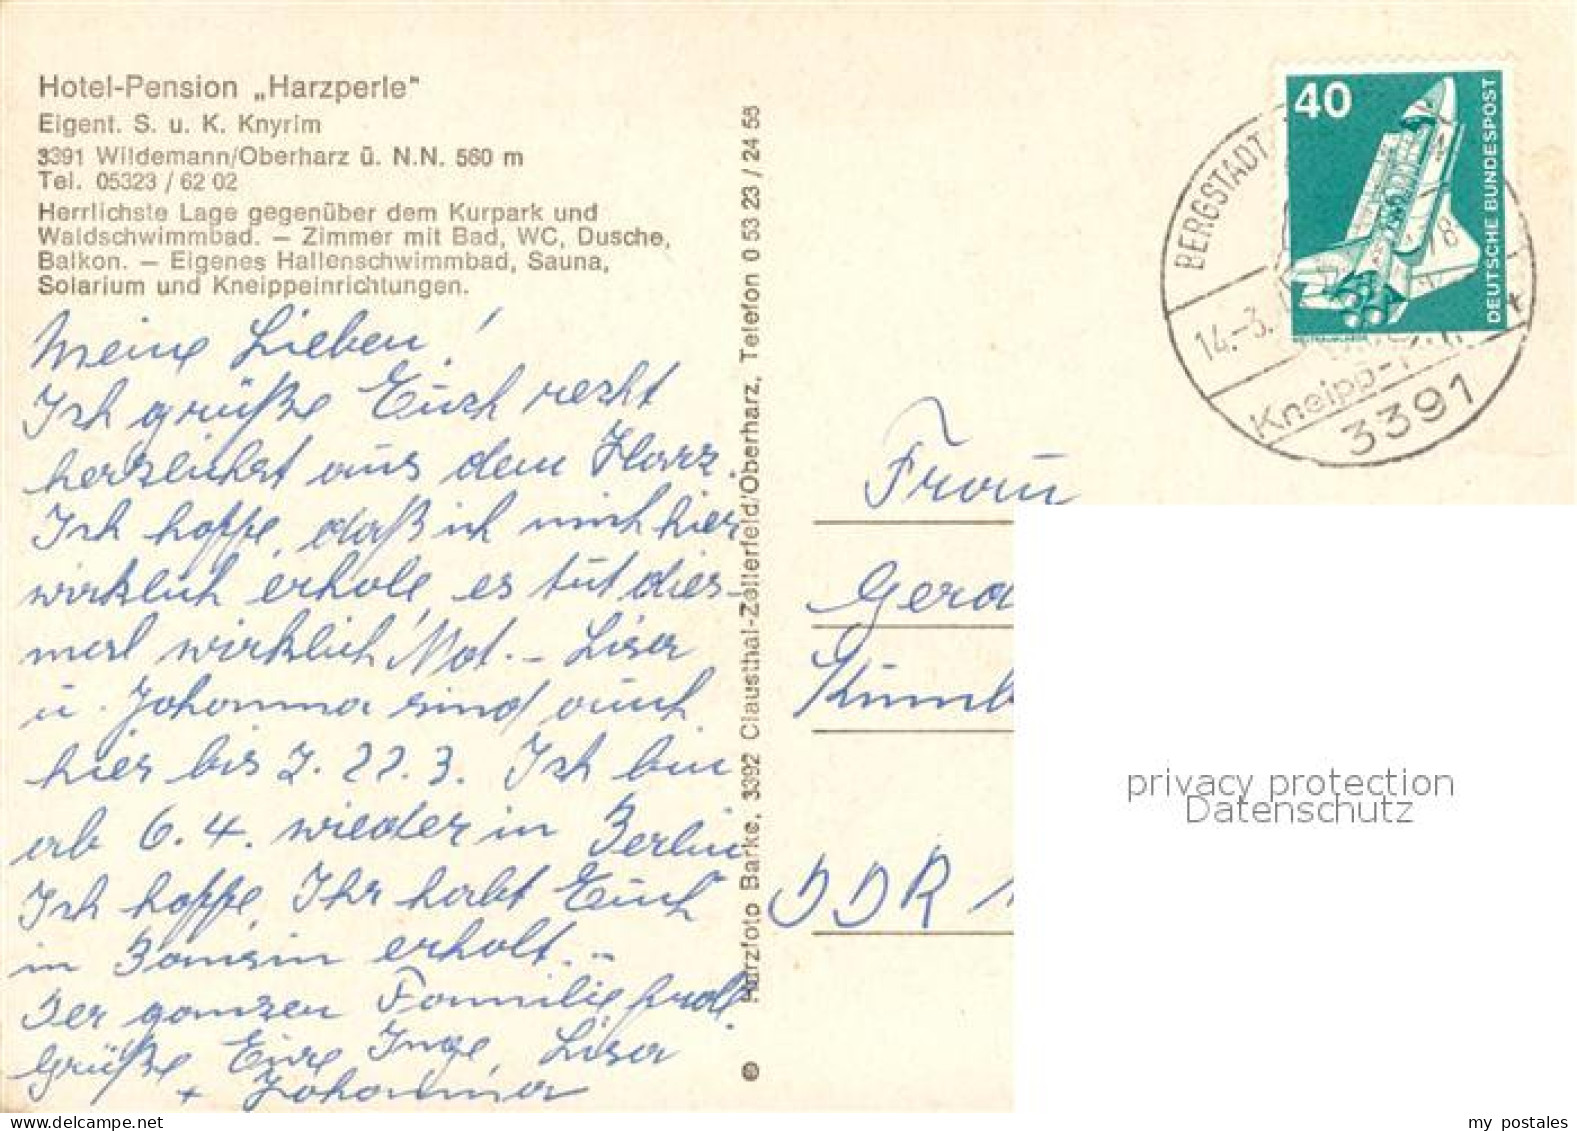 Hotel-Pension „Harzperle"
Eigent. S. u. K. Knyrim
3391 Wildemann/Oberharz ü. N.N. 560 m
Tel. 05323 / 62 02
Herrlichste Lage gegenüber dem Kurpark und
Waldschwimmbad. — Zimmer mit Bad, WC, Dusche,
Balkon. — Eigenes Hallenschwimmbad, Sauna,
Solarium und Kneippeinrichtungen.
Meine Lieben!
Ich grüße Euch recht
herzlichst aus dem Harz.
Ich hoffe, daß ich mich hier
wirklich erhole, es tut dies-
mal wirklich Not. – Lisa
u. Johanna sind auch
hier bis z. 22.3. Ich bin
ab 6.4. wieder in Berlin
Ich hoffe, Ihr habt Euch
in Bansin erholt...
Der ganzen Familie herzl.
Grüße Eure Inge, Lisa
+ Johanna
Harzfoto Barke, 3392 Clausthal-Zellerfeld/Oberharz, Telefon 0 53 23 / 24 58
40
DEUTSCHE BUNDESPOST
BERGSTADT
14.-3.
18
Kneipp-
3391
Frau
Gera
DDR
privacy protection
Datenschutz
my postales